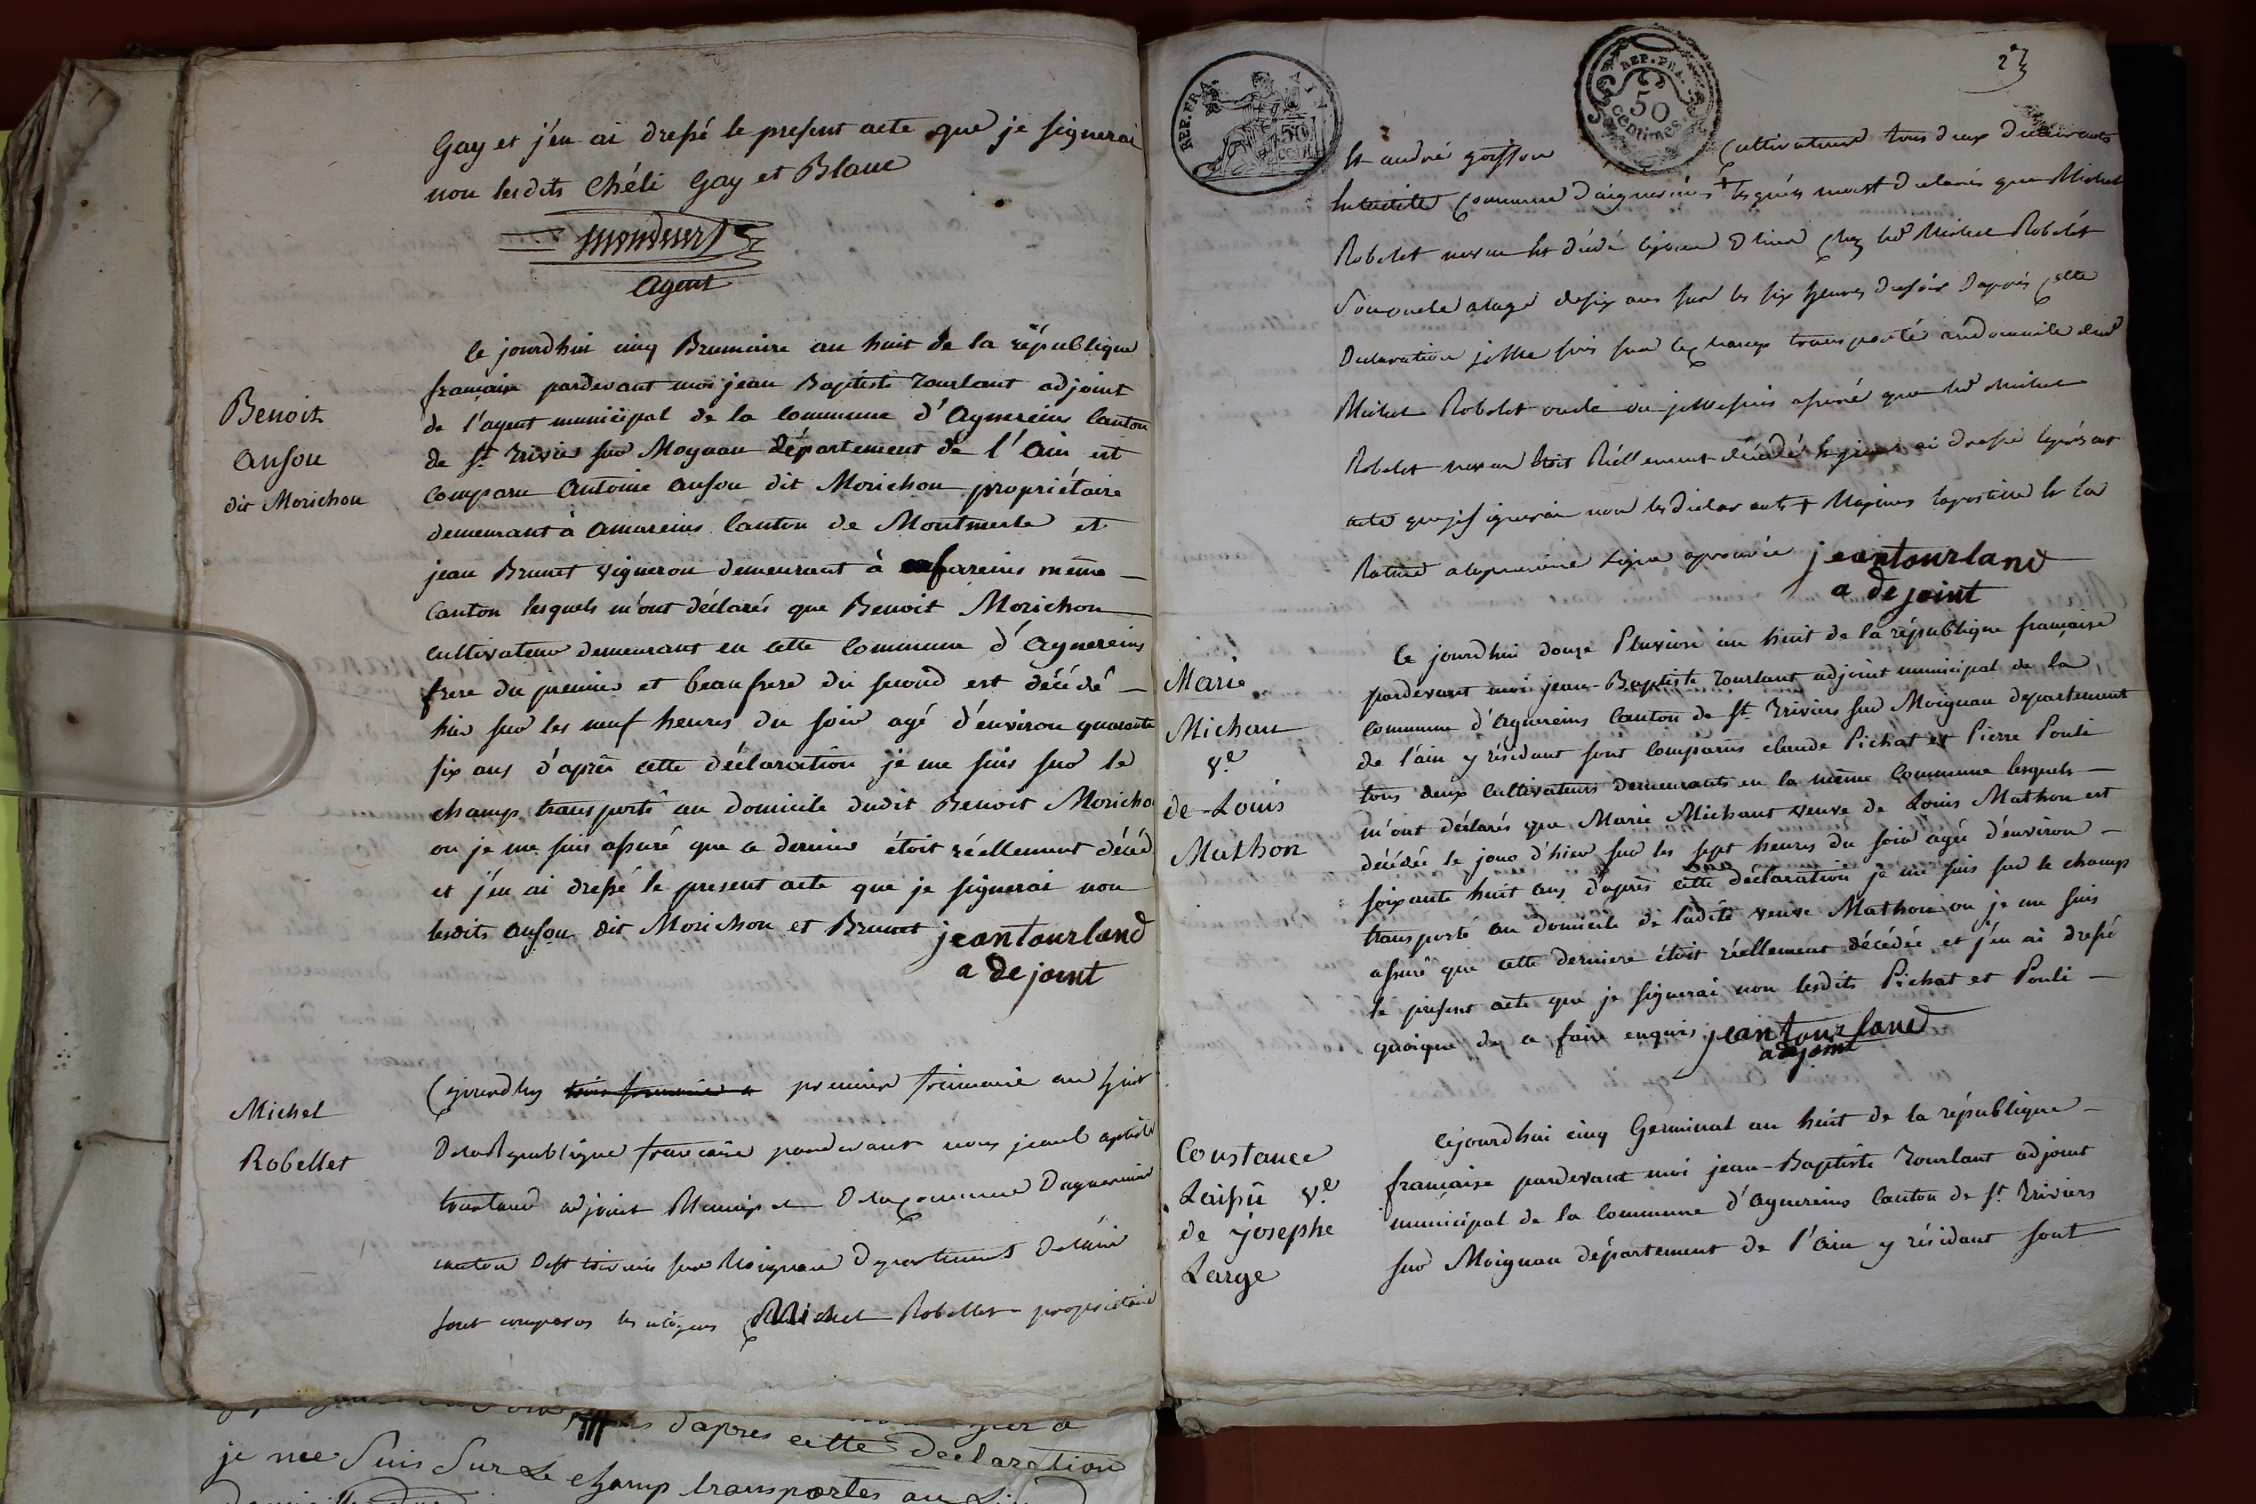 Gay et j'en ai dressé le present acte que je signerai
non lesdits Chéli Gay et Blanc
mondesert
agent
Benoit
anson
dit Morichon
ce jourdhui cinq Brumaire an huit de la république
francaise pardevant moi jean Baptiste Tourlant adjoint
de l'agent municipal de la Commune d'Aynereins Canton
de St. Trivier sur Moynan Département de l'Ain est
comparu Antoine anson dit Morichon propriétaire
demeurant à amareins Canton de Montmerle et
jean Brunet vigneron demeurant à enfareins même
Canton lesquels m'ont déclarés que Benoit Morichon
cultivateur demeurant en cette Commune d'Aynereins
frere du premier et beaufrere du second est décédé
hier sur les neuf heures du soir agé d'environ quarente
six ans d'après cette déclaration je me suis sur le
champ transporté au domicile dudit Benoit Moricho
ou je me suis assuré que ce dernier étoit réellement décéd
et j'en ai dressé le present acte que je signerai non
lesdits anson dit Morichon et Brunet jeantourland
adejoint
Michel
Robellet
Cejourdhuy trois frimaire premier frimaire an huit
Delarepublique francaise pardevant nous jeanb aptiste
tourland adjoint Municipal Delacommune Dagnereins
canton Dest trivier sur Moignan Departement Delain
sont comparos les citoyens Michel Robellet propriétaire
REP. FRA. AIN
50 CENT.
REP. FRA.
50
Centimes
27
Et andré Cultivateurs tous deux demeurants
Commune Daignereins + lesquels mont declarés que Michel
Robelet neveu Est décédé lejour Dhier Chez led Michel Robelet
Son oncle alage desix ans sur les six heures dusoir Dapprés Cette
Declaration jeMe suis sur leChamps transporté audomicile dud
Michel Robelet oncle ou jeMesuis assuré que led Michel
Robelet neveu Etoit Réellement décédé Et jean ai Dressé leprésent
acte quejesignerai non lesdeclarants + Requis lapostille Et la
Rature alapremiere Ligne aprouvée jeantourland
adejoint
Marie
Michau
Ve
de Louis
Mathon
Ce jourdhui douze Pluviose an huit de la république française
pardevant moi jean-Baptiste Tourlant adjoint municipal de la
Commune d'Agnereins Canton de St. Triviers sur Moignan departement
de l'ain y résidant sont comparus claude Pichat et Pierre Ponli
tous deux Cultivateurs demeurants en la même Commune lesquels
m'ont déclarés que Marie Michaut veuve de Louis Mathon est
décédée le jour d'hier sur les sept heures du soir agée d'environ
soixante huit ans d'après cette déclaration je me suis sur le champs
transporté au domicile de ladite veuve Mathon ou je me suis
assuré que cette derniere étoit réellement décédée et j'en ai dressé
le présent acte que je signerai non lesdits Pichat et Ponli
quoique de ce faire enquis jeantourland
adejoint
Constance
Laissû Ve
de Josephe
Large
Cejourdhui cinq Germinal an huit de la république
française pardevant moi jean-Baptiste Tourlant adjoint
municipal de la Commune d'Agnereins Canton de St. Triviers
sur Moignan département de l'Ain y résidant sont
d'apres cette declaration
je me Suis Sur Le champ transportes au